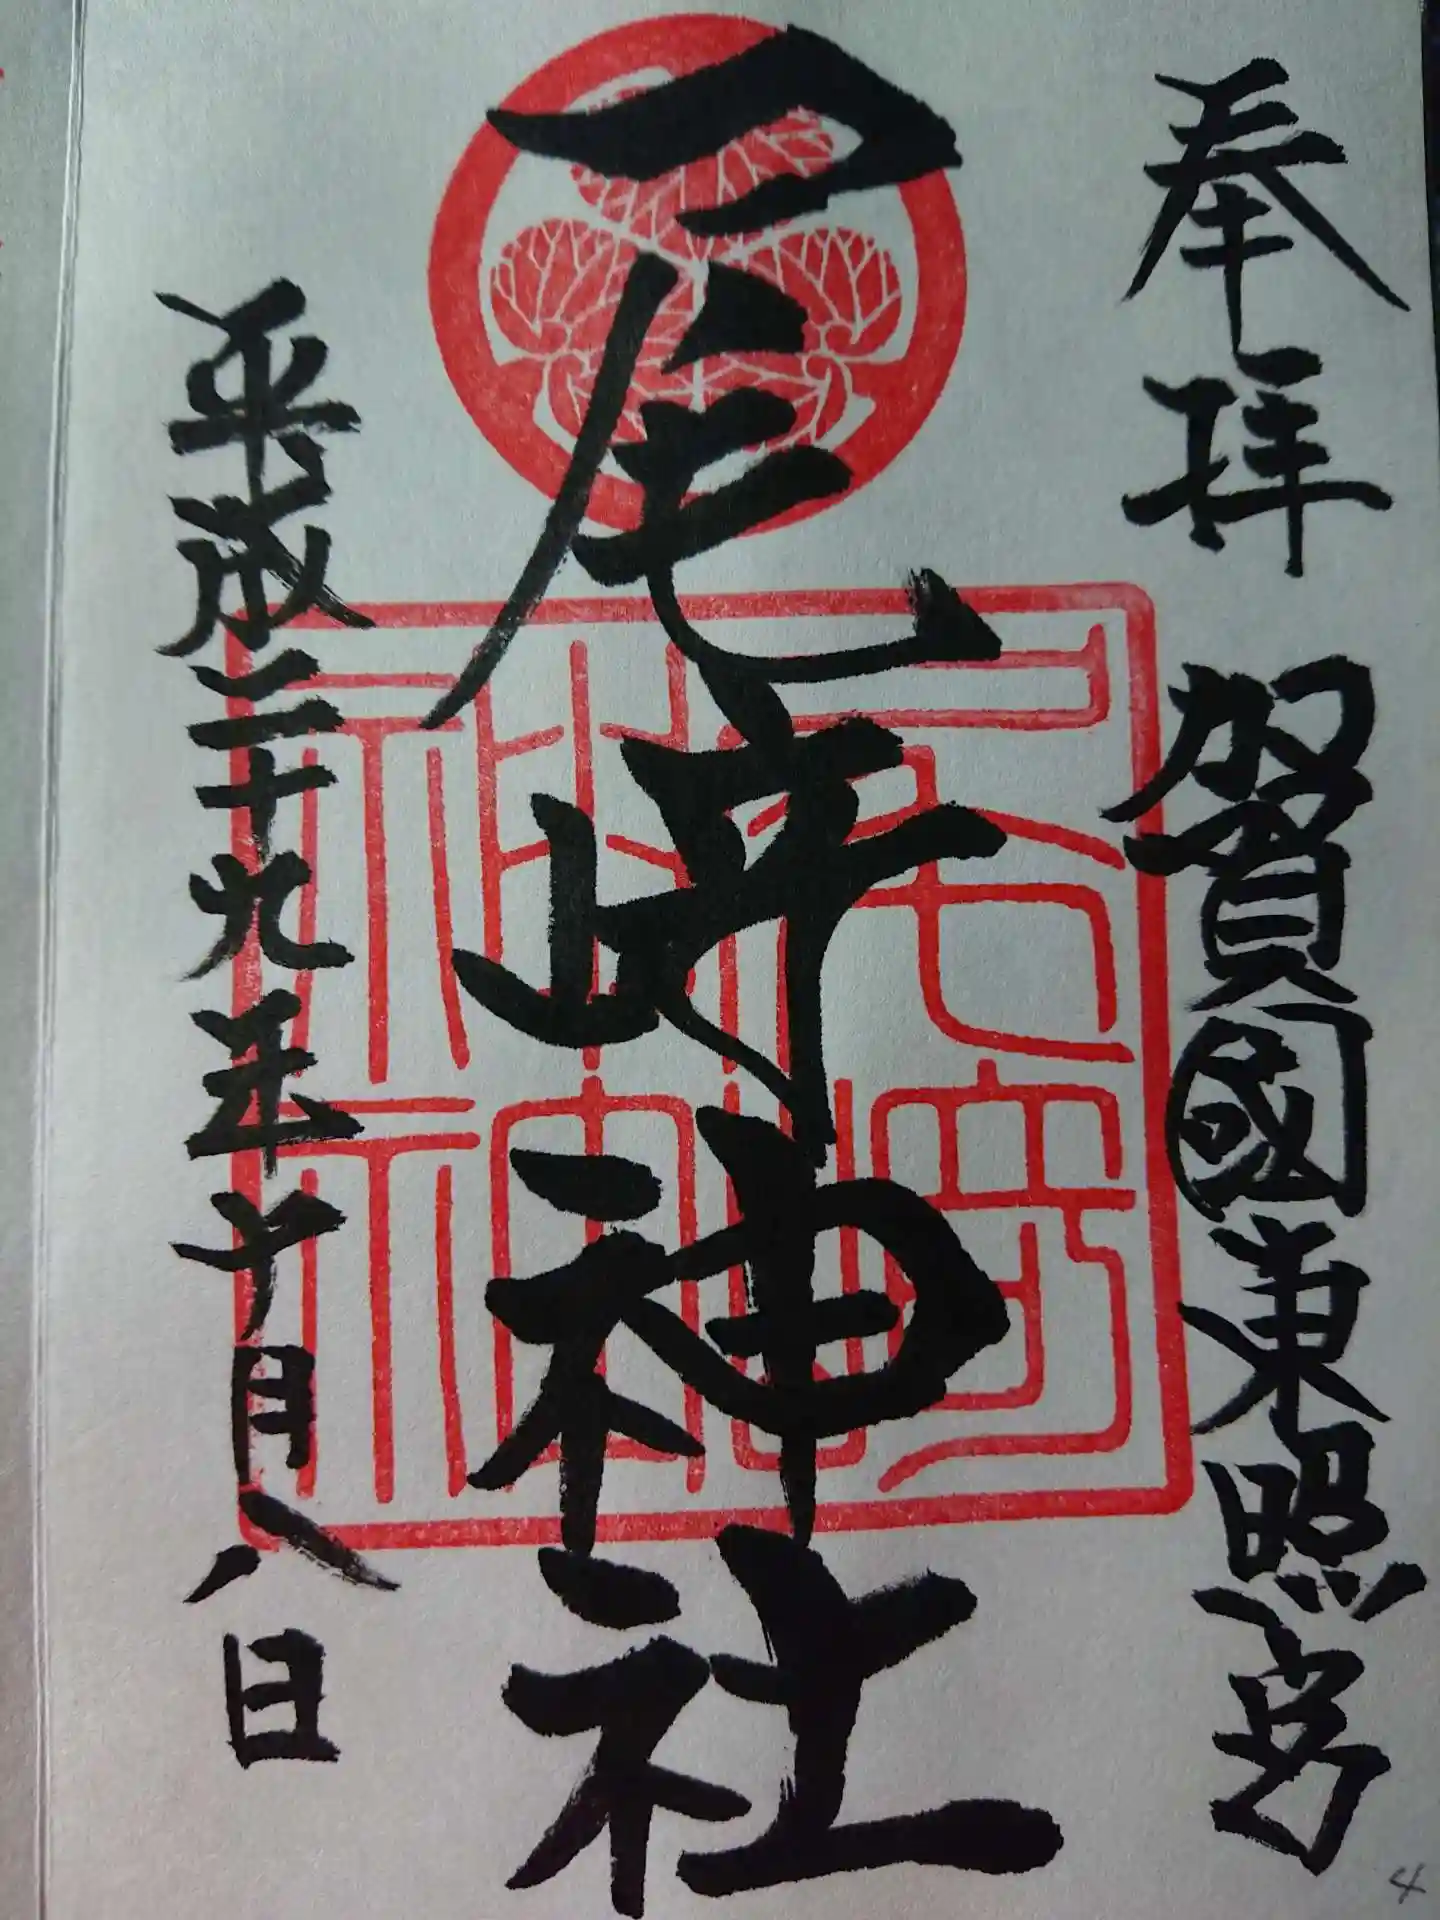 奉拝 賀國東照宮
尾﨑神社
平成二十九年十月八日
4